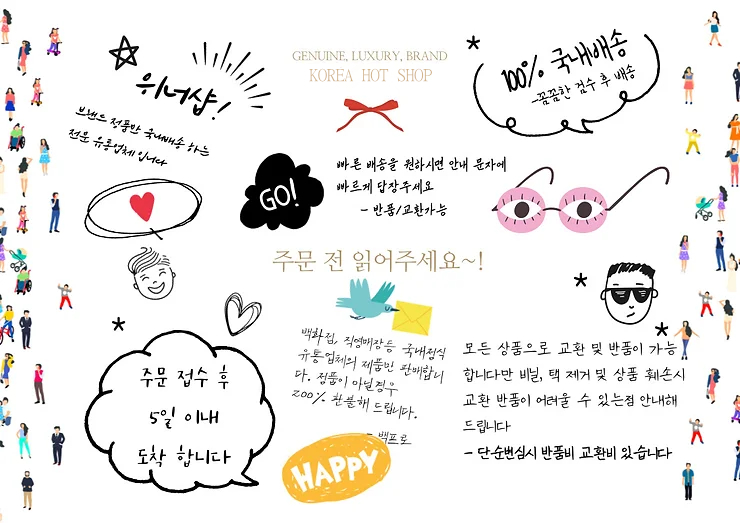 GENUINE, LUXURY, BRAND
KOREA HOT SHOP
위너샵!
브랜드 정품만 국내배송 하는
전문 유통업체 입니다
100% 국내배송
-꼼꼼한 검수 후 배송
GO!
빠른 배송을 원하시면 안내 문자에
빠르게 답장주세요
- 반품/교환가능
주문 전 읽어주세요~!
주문 접수 후
5일 이내
도착 합니다
백화점, 직영매장등 국내정식
유통업체의 제품만 판매합니
다. 정품이 아닐경우
200% 환불해 드립니다.
- 백프로
HAPPY
모든 상품으로 교환 및 반품이 가능
합니다만 비닐, 택 제거 및 상품 훼손시
교환 반품이 어려울 수 있는점 안내해
드립니다
- 단순변심시 반품비 교환비 있습니다